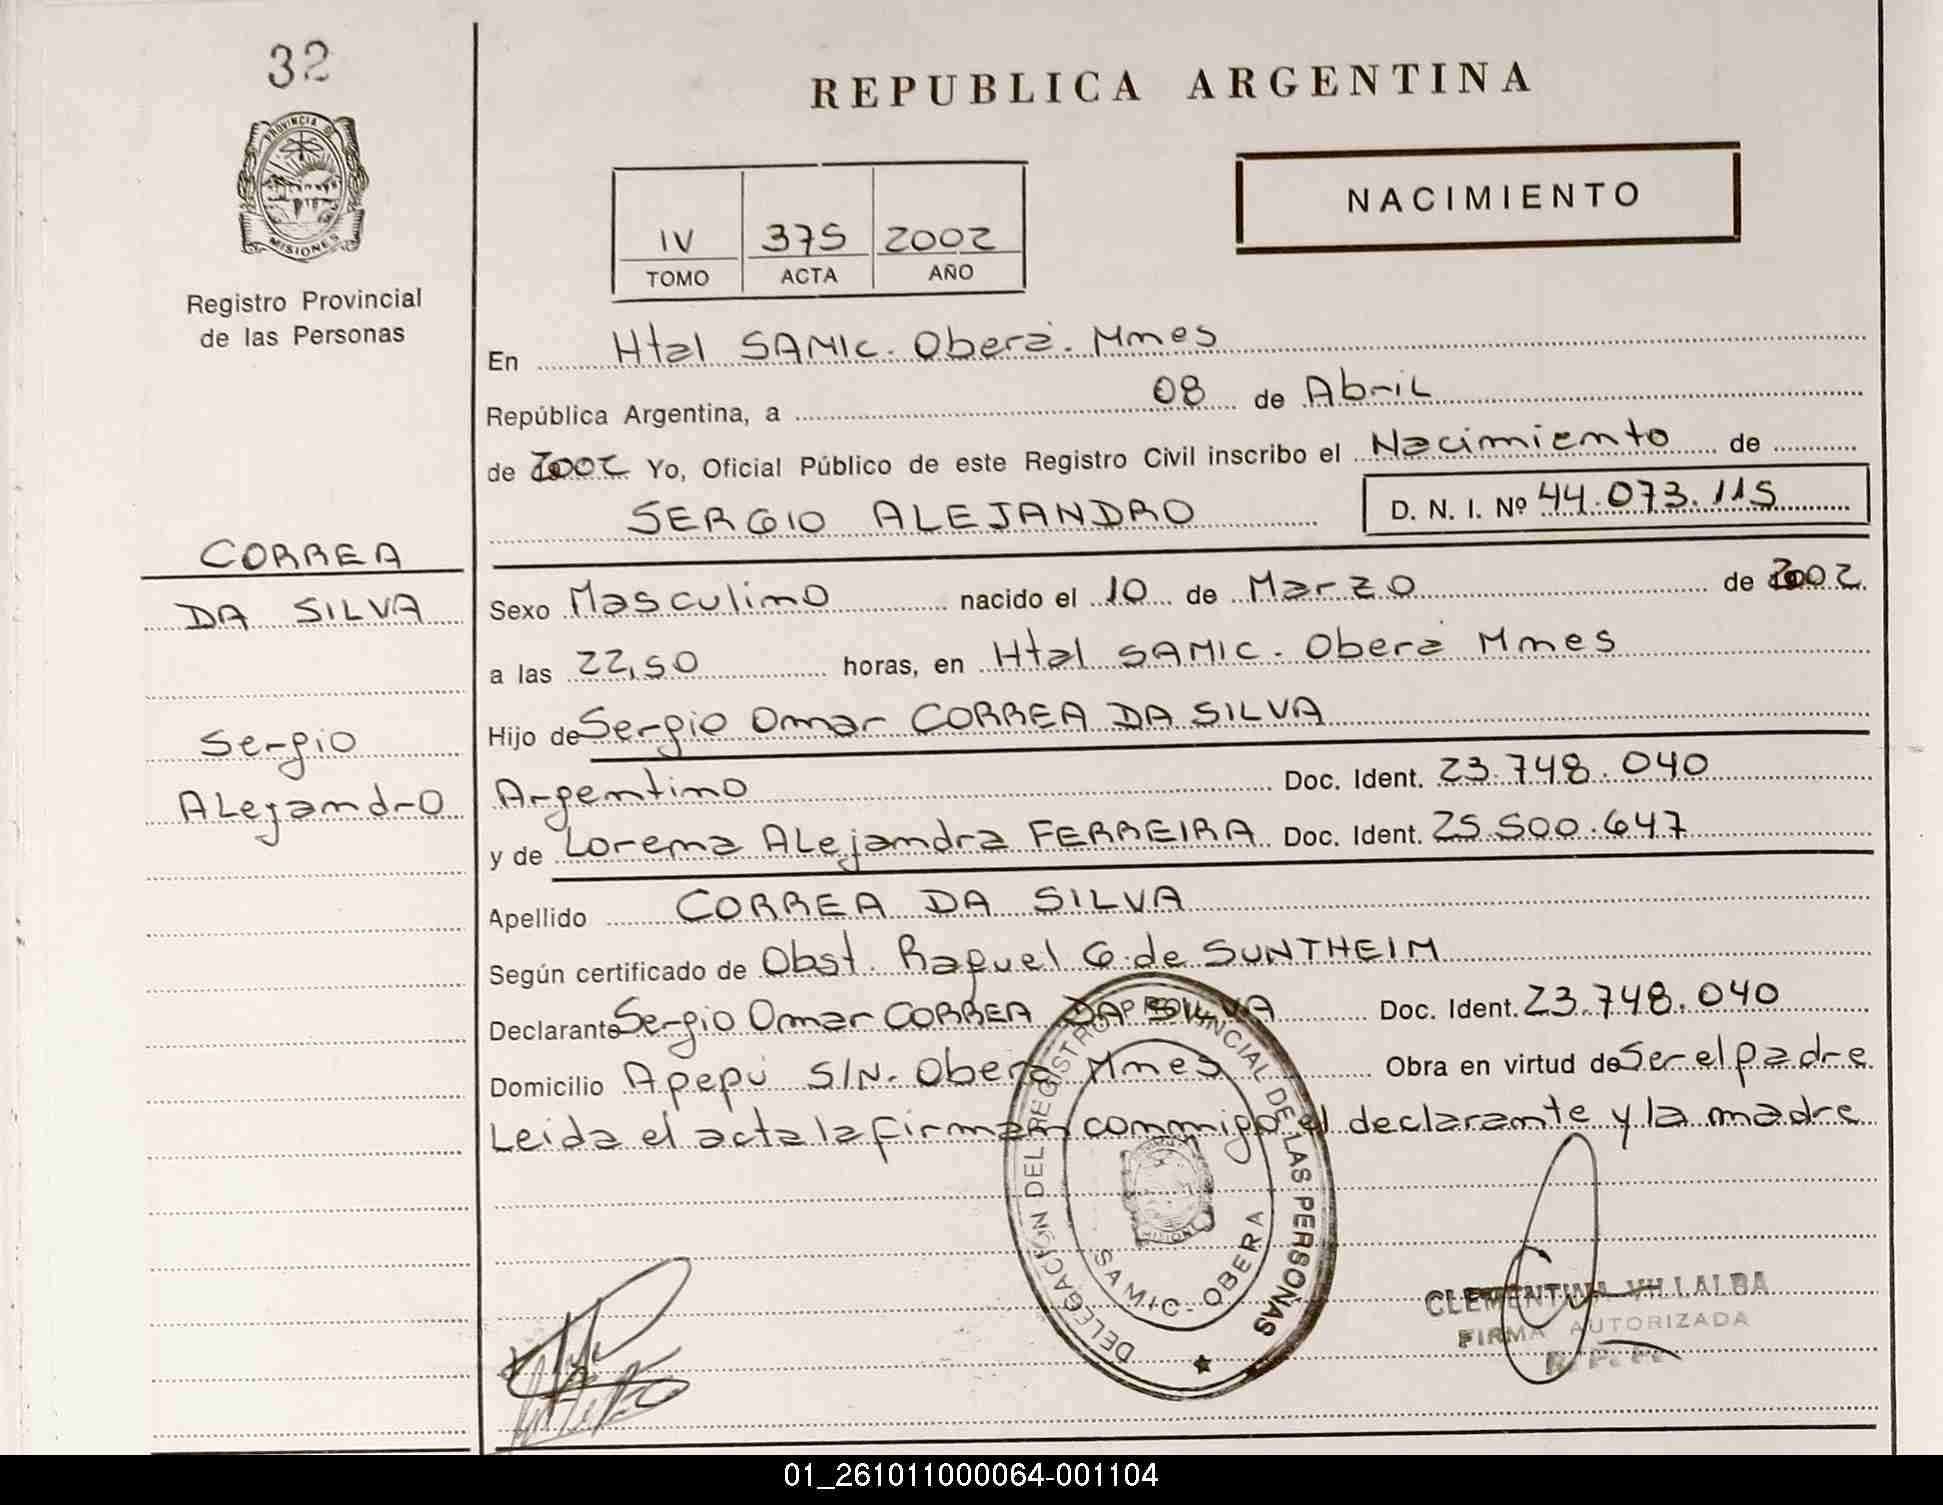 32
PROVINCIA DE
MISIONES
Registro Provincial
de las Personas
CORREA
DA SILVA
Sergio
Alejandro
REPUBLICA ARGENTINA
NACIMIENTO
IV 375 2002
TOMO ACTA AÑO
En Htal SAMIC. Oberá. Mnes
República Argentina, a 08 de Abril
de 2002 Yo, Oficial Público de este Registro Civil inscribo el Nacimiento de
SERGIO ALEJANDRO D. N. I. Nº 44.073.115
Sexo Masculino nacido el 10 de Marzo de 2002.
a las 22,50 horas, en Htal SAMIC. Oberá Mnes
Hijo de Sergio Omar CORREA DA SILVA
Argentino Doc. Ident. 23.748.040
y de Lorena Alejandra FERREIRA Doc. Ident. 25.500.647
Apellido CORREA DA SILVA
Según certificado de Obst. Raquel G. de SUNTHEIM
Declarante Sergio Omar CORREA DA SILVA Doc. Ident. 23.748.040
Domicilio Apepú S/N. Oberá Mnes Obra en virtud de Ser el padre
Leida el acta la firman conmigo el declarante y la madre
DELEGACIÓN DEL REGISTRO PROVINCIAL DE LAS PERSONAS
SAMIC - OBERA
CLEMENTINA VILLALBA
FIRMA AUTORIZADA
01_261011000064-001104